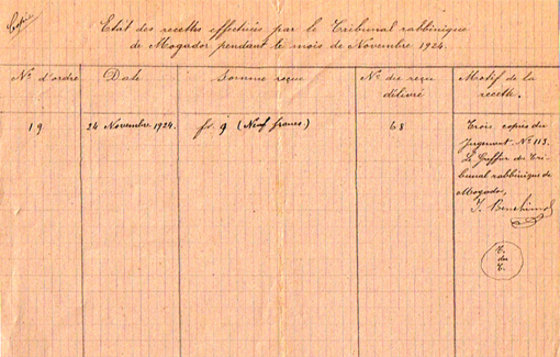 Copie
Etat des recettes effectuées par le Tribunal rabbinique
de Mogador pendant le mois de Novembre 1924.
Nº d'ordre
Date
Somme reçue
Nº du reçu
délivré
Motif de la
recette.
19
24 Novembre 1924.
fr. 9 (Neuf francs.)
68
Trois copies du
Jugement Nº 113.
Le Greffier du Tri-
bunal rabbinique de
Mogador,
J. Benchimol
C.
du
T.